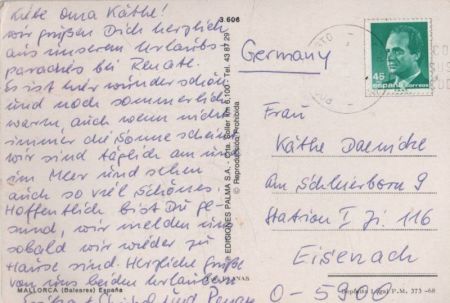 Liebe Oma Käthe!
wir grüßen Dich herzlich
aus unserem Urlaubs-
paradies bei Renate.
Es ist hier wunderschön
und noch sommerlich
warm, auch wenn nicht
immer die Sonne scheint
wir sind täglich am und
im Meer und sehen
auch so viel Schönes.
Hoffentlich bist Du ge-
sund, wir melden uns
sobald wir wieder zu
Hause sind. Herzliche Grüße
von uns beiden Urlaubern
MALLORCA (Baleares) España
3.606
© EDICIONES PALMA S.A. - Crta. Sóller km 6,100 - Tel. 43 87 29
© Reproducción Prohibida
Germany
45
españa
correos
Frau
Käthe
am Schleierborn 9
Station I Zi. 116
Eisenach
O-5900
Depósito Legal P.M. 373-68